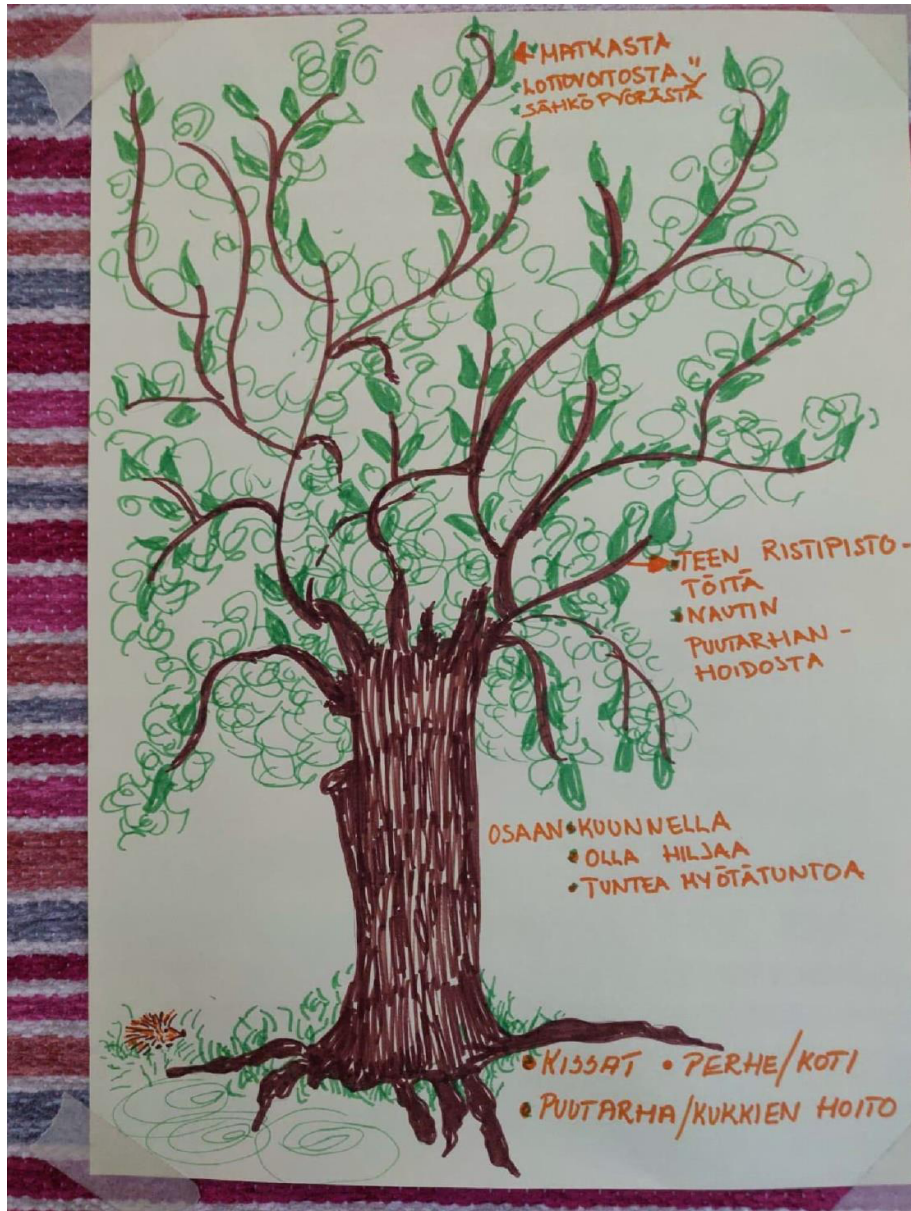 • MATKASTA
• LOTTOVOITOSTA
• SÄHKÖPYÖRÄSTÄ
• TEEN RISTIPISTO-
TÖITÄ
• NAUTIN
PUUTARHAN-
HOIDOSTA
OSAAN • KUUNNELLA
• OLLA HILJAA
• TUNTEA MYÖTÄTUNTOA
• KISSAT • PERHE/KOTI
• PUUTARHA/KUKKIEN HOITO